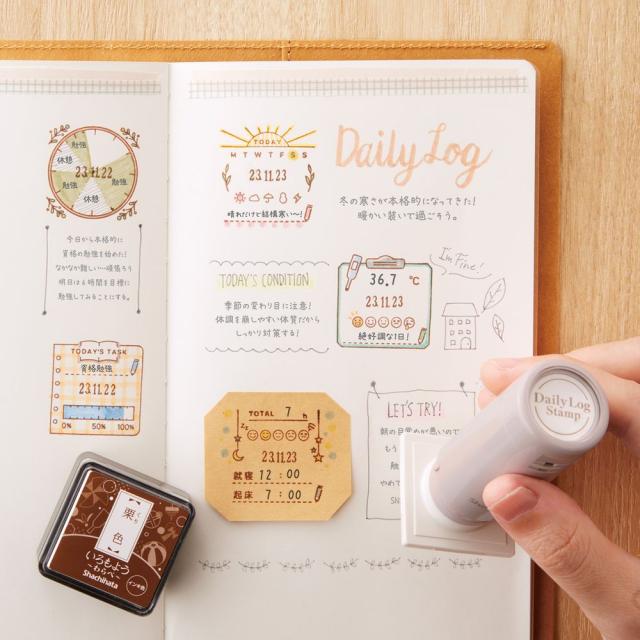 勉強
休憩
23.11.22
勉強
勉強
休憩
今日から本格的に
資格の勉強を始めた!
なかなか難しい…頑張ろう
明日は6時間を目標に
勉強してみることにする。
TODAY'S TASK
資格勉強
23.11.22
0% 50% 100%
TODAY
M T W T F S S
23.11.23
晴れだけど結構寒い〜!
Daily Log
冬の寒さが本格的になってきた!
暖かい装いで過ごそう。
TODAY'S CONDITION
季節の変わり目に注意!
体調を崩しやすい体質だから
しっかり対策する!
36.7 ℃
23.11.23
絶好調な1日!
I'm Fine!
TOTAL 7 h
23.11.23
就寝 12:00
起床 7:00
LET'S TRY!
朝の目覚めが悪いので
もう
やめて
SN
DailyLog
Stamp
栗
くり
色
いろもよう
〜わらべ〜
Shachihata
インキ色